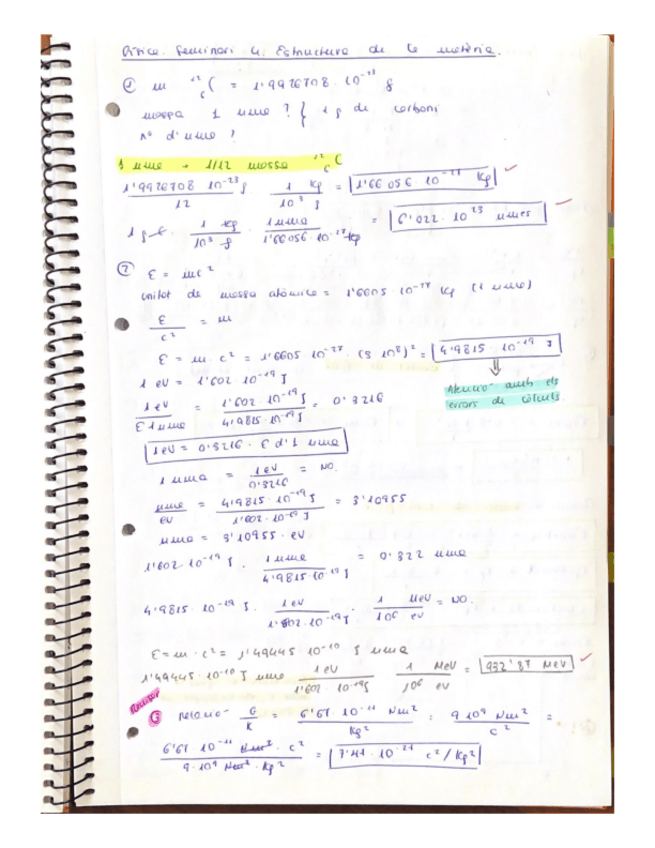 Física. Seminari 4. Estructura de la matèria.
① m ¹²₆C = 1'9926708 · 10⁻²³ g
massa 1 uma ? } 1 g de carboni
nº d'uma ?
1 uma → 1/12 massa ¹²₆C
1'9926708 · 10⁻²³ g / 12 · 1 Kg / 10³ g = 1'66056 · 10⁻²⁷ Kg ✓
1 g · 1 Kg / 10³ g · 1 uma / 1'66056 · 10⁻²⁷ Kg = 6'022 · 10²³ umes ✓
② E = mc²
Unitat de massa atòmica = 1'6605 · 10⁻²⁷ Kg (1 uma)
E / c² = m
E = m · c² = 1'6605 · 10⁻²⁷ · (3 · 10⁸)² = 4'9815 · 10⁻¹⁹ J
1 eV = 1'602 · 10⁻¹⁹ J
Atenció amb els
errors de càlculs.
1 eV / E 1 uma = 1'602 · 10⁻¹⁹ J / 4'9815 · 10⁻¹⁹ J = 0'3216
1 eV = 0'3216 · E d'1 uma
1 uma = 1 eV / 0'3216 = NO.
uma / eV = 4'9815 · 10⁻¹⁹ J / 1'602 · 10⁻¹⁹ J = 3'10955
uma = 3'10955 · eV
1'602 · 10⁻¹⁹ J · 1 uma / 4'9815 · 10⁻¹⁹ J = 0'322 uma
4'9815 · 10⁻¹⁹ J · 1 eV / 1'602 · 10⁻¹⁹ J · 1 MeV / 10⁶ eV = NO.
E = m · c² = 1'49445 · 10⁻¹⁰ J uma
1'49445 · 10⁻¹⁰ J uma 1 eV / 1'602 · 10⁻¹⁹ J 1 MeV / 10⁶ eV = 932'87 MeV ✓
⑥ relació G / K = 6'67 · 10⁻¹¹ Nm² / Kg² : 9 · 10⁹ Nm² / C² =
6'67 · 10⁻¹¹ Nm² · C² / 9 · 10⁹ Nm² · Kg² = 7'41 · 10⁻²¹ C² / Kg²